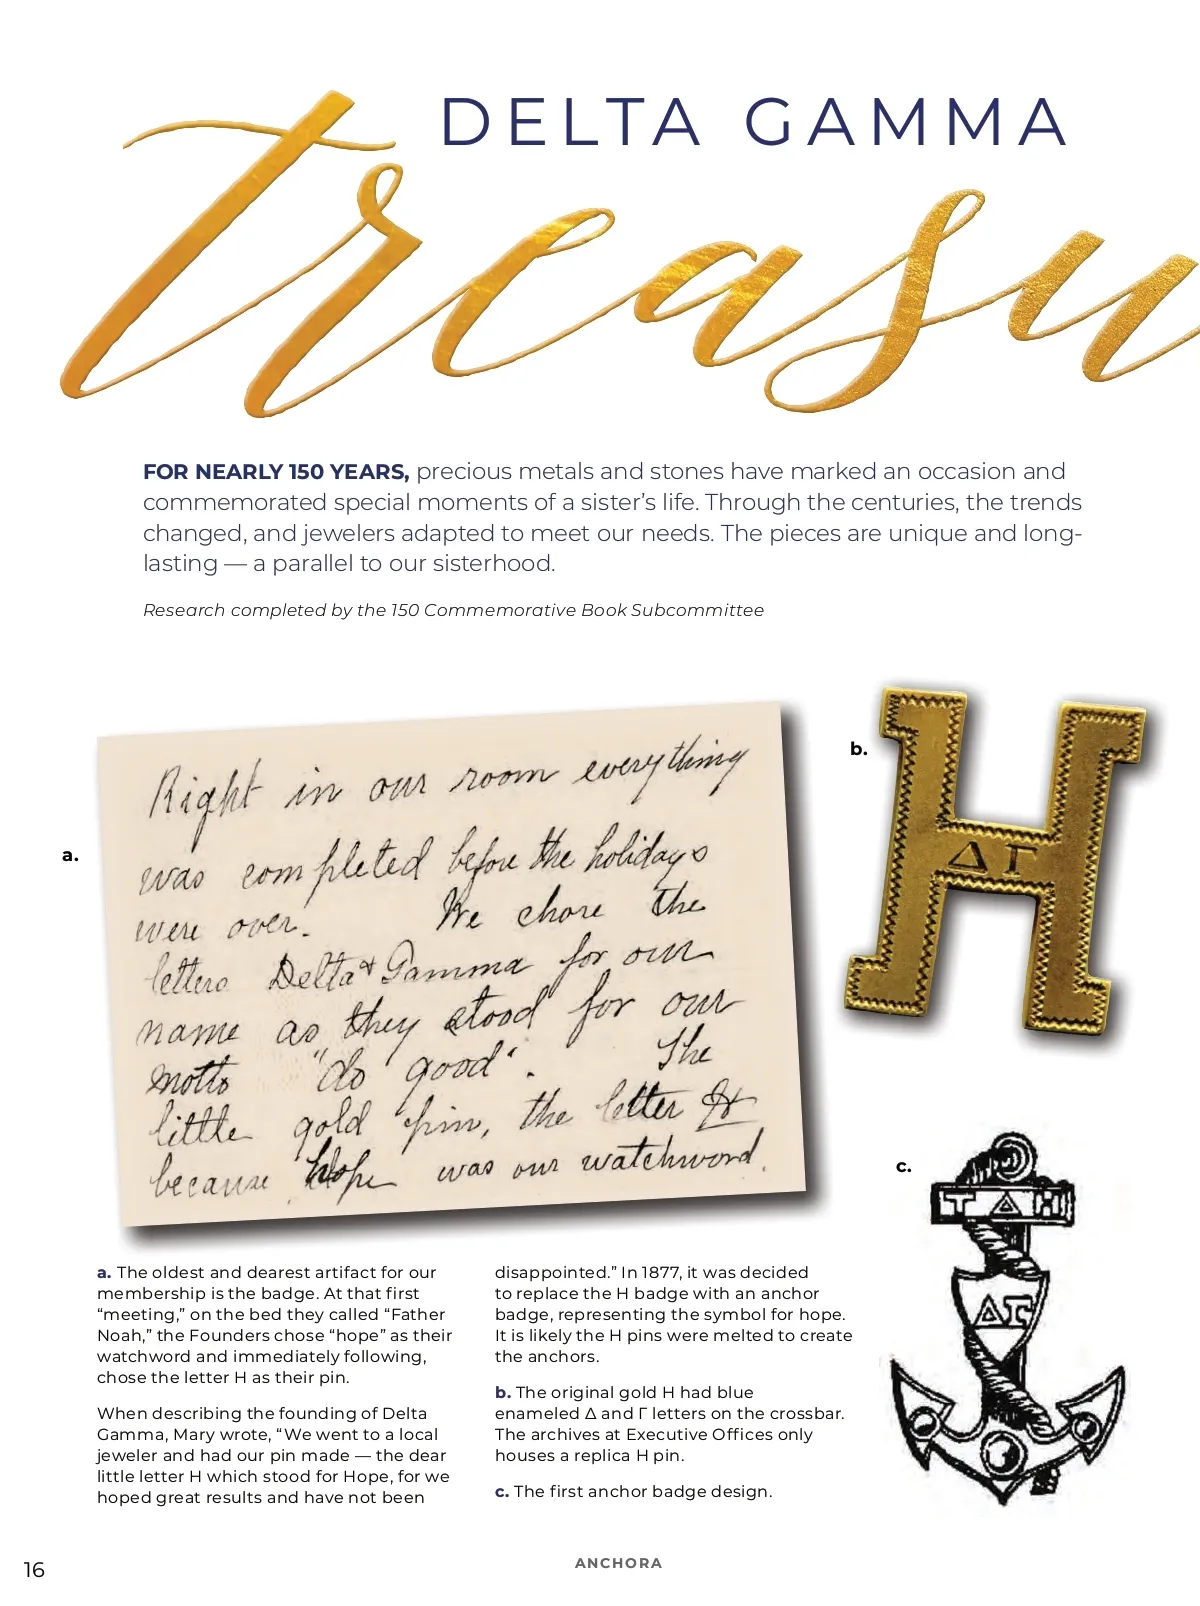 DELTA GAMMA
treasu
FOR NEARLY 150 YEARS, precious metals and stones have marked an occasion and
commemorated special moments of a sister’s life. Through the centuries, the trends
changed, and jewelers adapted to meet our needs. The pieces are unique and long-
lasting — a parallel to our sisterhood.
Research completed by the 150 Commemorative Book Subcommittee
a.
Right in our room everything
was completed before the holidays
were over. We chose the
letters Delta & Gamma for our
name as they stood for our
motto "do good". The
little gold pin, the letter H
because Hope was our watchword.
b.
Δ Γ
c.
T Δ H
ΔΓ
a. The oldest and dearest artifact for our
membership is the badge. At that first
“meeting,” on the bed they called “Father
Noah,” the Founders chose “hope” as their
watchword and immediately following,
chose the letter H as their pin.
When describing the founding of Delta
Gamma, Mary wrote, “We went to a local
jeweler and had our pin made — the dear
little letter H which stood for Hope, for we
hoped great results and have not been
disappointed.” In 1877, it was decided
to replace the H badge with an anchor
badge, representing the symbol for hope.
It is likely the H pins were melted to create
the anchors.
b. The original gold H had blue
enameled Δ and Γ letters on the crossbar.
The archives at Executive Offices only
houses a replica H pin.
c. The first anchor badge design.
16
ANCHORA